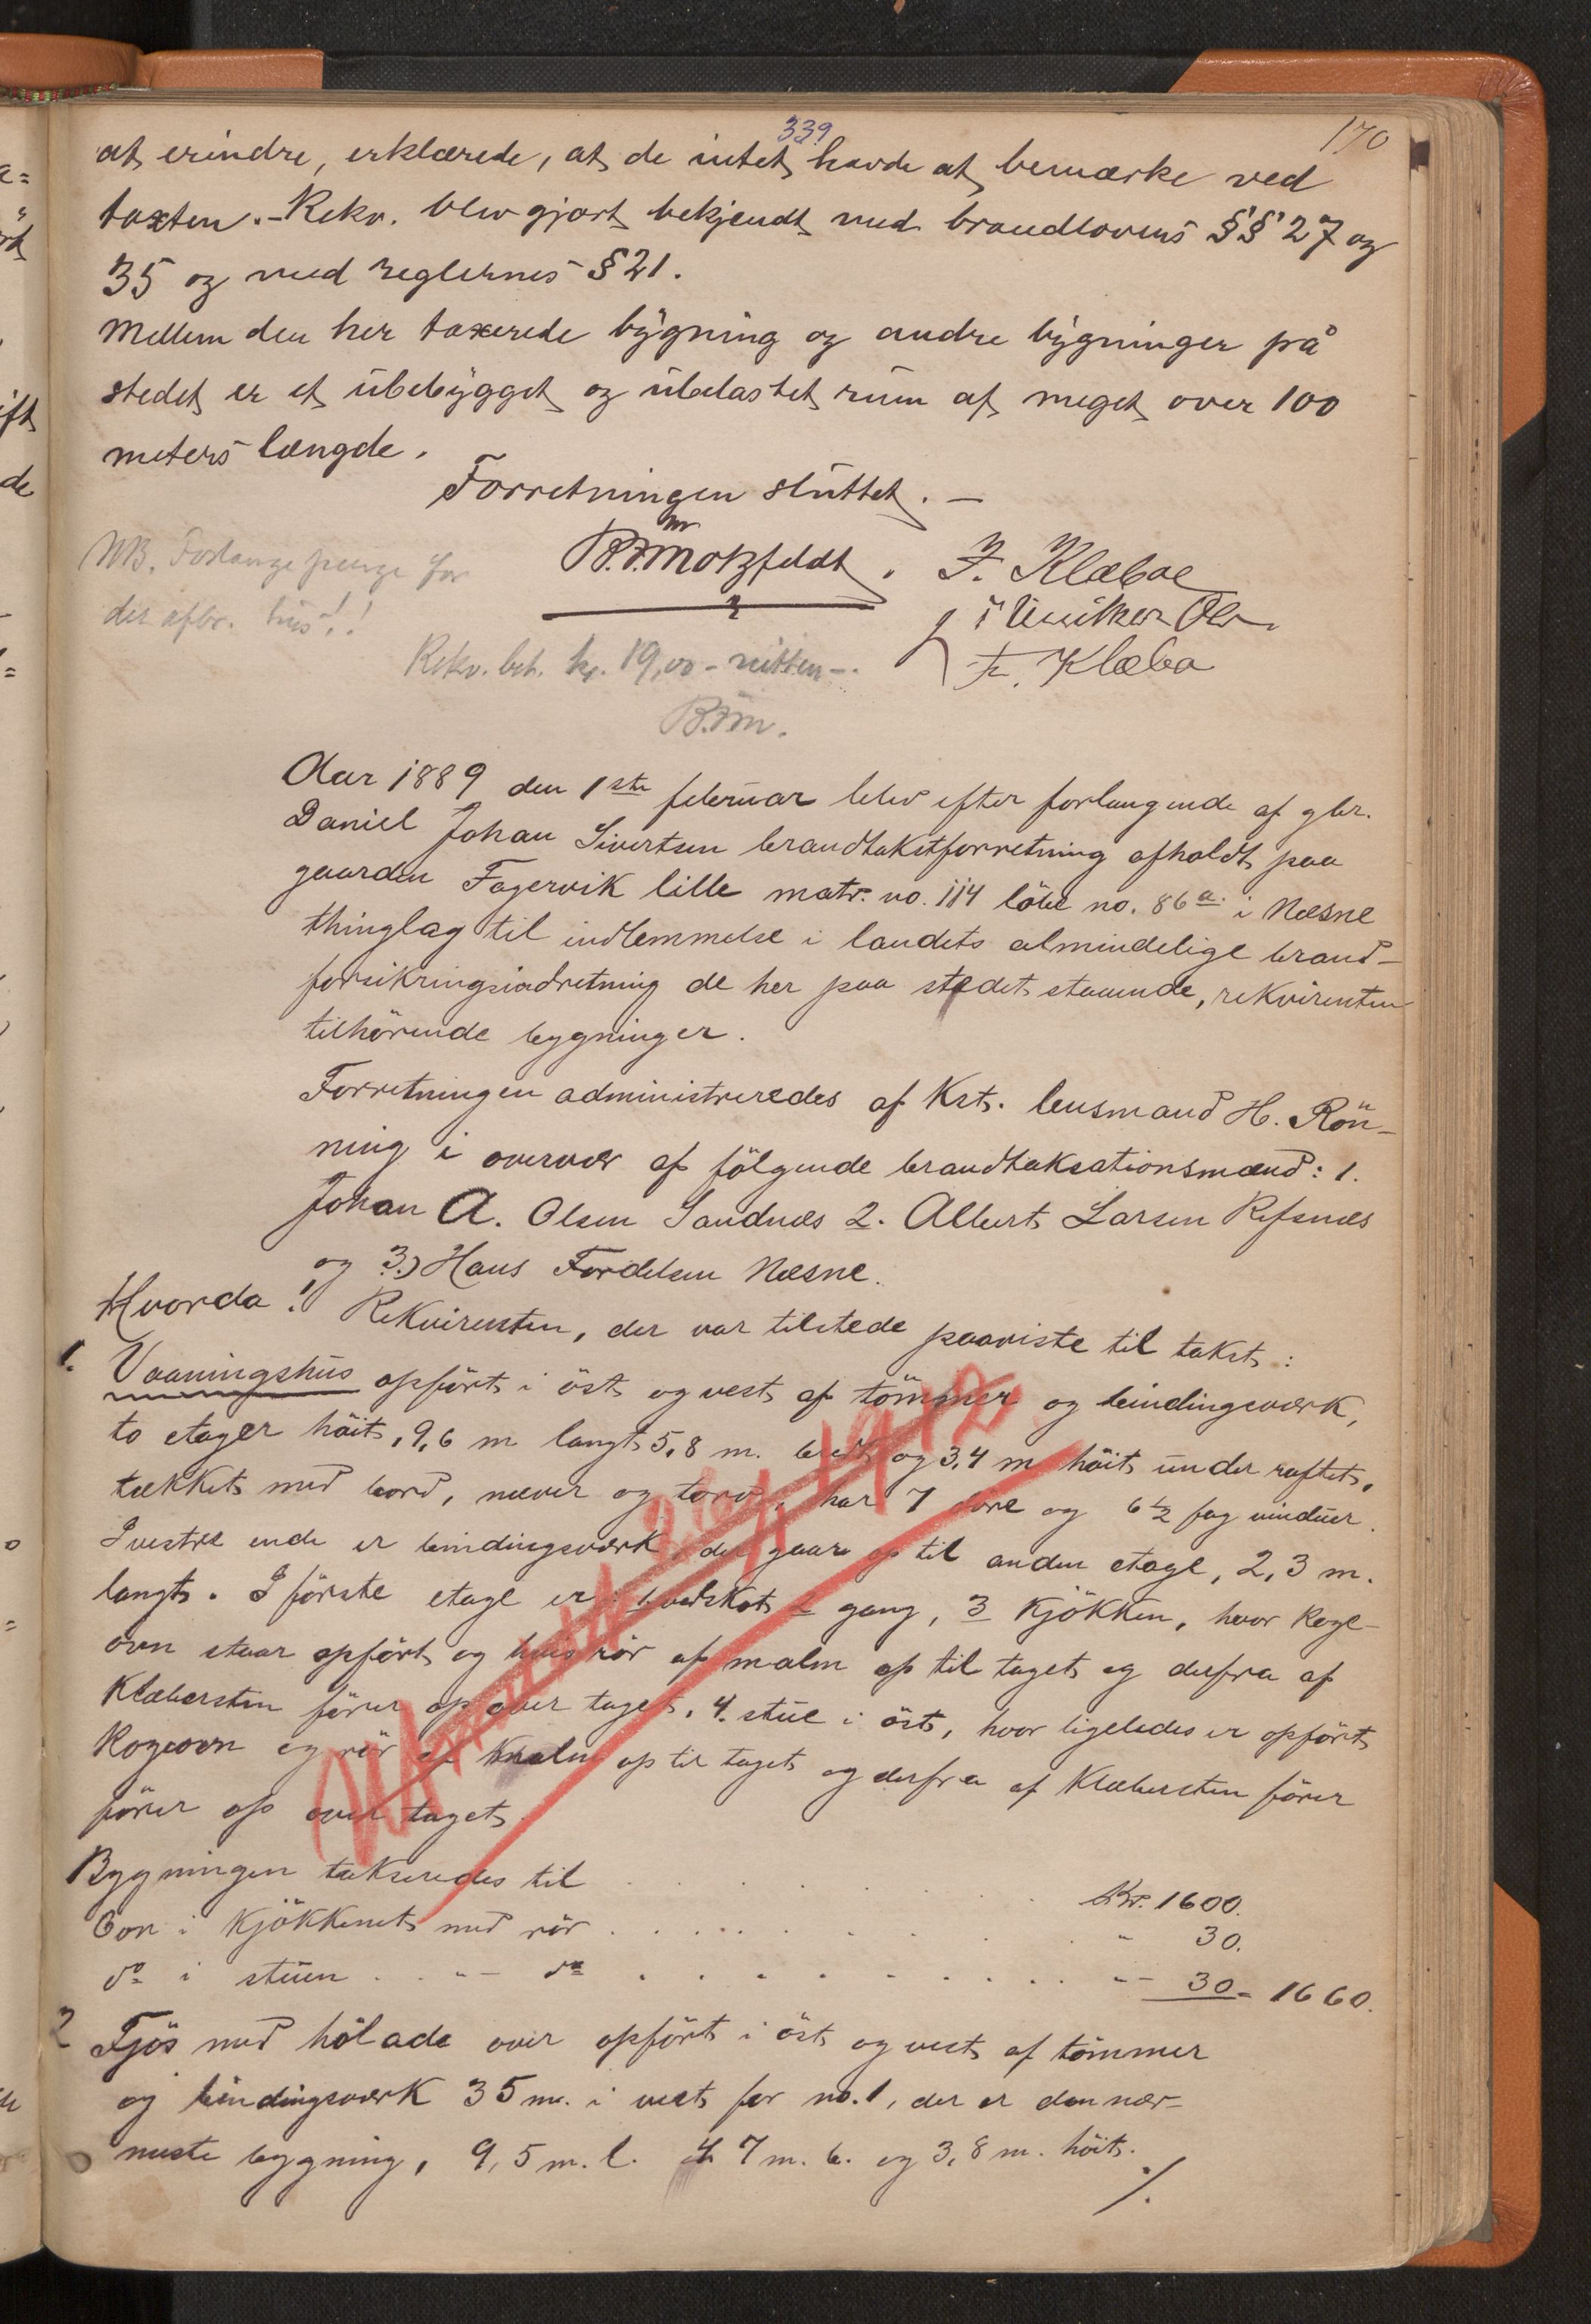 339
170
at erindre, erklærede, at de intet havde at bemærke ved
taxten. - Rekv. blev gjort bekjendt med brandlovens §§ 27 og
35 og med reglernes § 21.
Mellem den her taxerede bygning og andre bygninger på
stedet er et ubebygget og ubelastet rum af meget over 100
meters længde.
Forretningen sluttet. -
NB. Forlange penge for
det afbr. hus!!
B.F.Motzfeldt. F. Klæboe
F. Klæbo
Rekv. bet. kr. 19,00 - nitten -.
B.F.M.
Aar 1889 den 1ste februar blev efter forlangende af gbr.
Daniel Johan Sivertsen brandtakstforretning afholdt paa
gaarden Fagervik lille matr. no. 114 löbe no. 86 a. i Næsne
thinglag til indlemmelse i landets almindelige brand-
forsikringsindretning de her paa stedet staaende, rekvirenten
tilhörende bygninger.
Forretningen administreredes af Kst. lensmand H. Rön-
ning i overvær af fölgende brandtaksationsmænd: 1.
Johan A. Olsen Sandnæs 2. Albert Larsen Refsnæs
og 3.) Hans Fordelsen Næsne.
Hvorda! Rekvirenten, der var tilstede paaviste til takst:
1. Vaaningshus opfört i öst og vest af tömmer og bindingsværk,
to etager höit, 9,6 m langt 5,8 m. bredt og 3,4 m höit under raftet,
tækket med bord, næver og torv, har 7 döre og 6 ½ fag vinduer.
I vestre ende er bindingsværk, der gaar op til anden etage, 2,3 m.
langt. I förste etage er: 1 bedskot 2 gang, 3 Kjökken, hvor koge-
ovn staar opfört og hvis rör af malm op til taget og derfra af
Klæbersten förer op over taget, 4. stue i öst, hvor ligeledes er opfört
Kogeovn og rör af malm op til taget og derfra af Klæbersten förer
förer op over taget.
Bygningen takseredes til . . . . . Kr. 1600.
Ovn i Kjökkenet med rör . . . . . " 30.
do i stuen . . - " - do . . . . . " - 30 - 1660.
2 Fjös med hölade over opfört i öst og vest af tömmer
og bindingsværk 35 m. i vest for no. 1, der er den nær-
meste bygning, 9,5 m. l. 7 m. b. og 3,8 m. höit.
./.